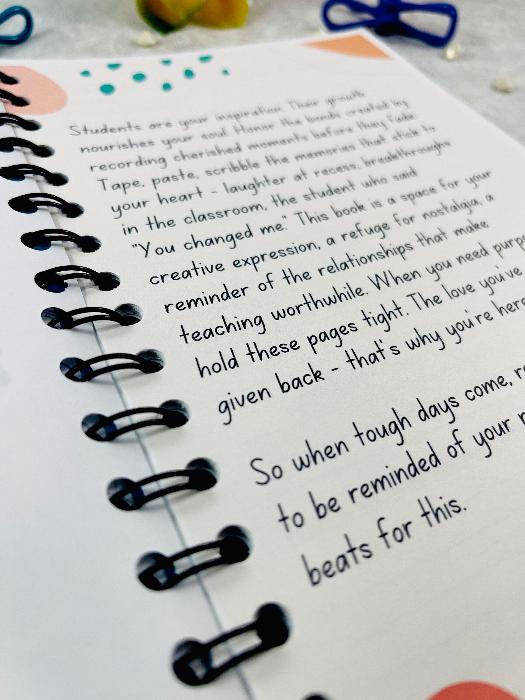 Students are your inspiration. Their growth
nourishes your soul. Honor the bonds created by
recording cherished moments before they fade.
Tape, paste, scribble the memories that stick to
your heart - laughter at recess, breakthroughs
in the classroom, the student who said
"You changed me." This book is a space for your
creative expression, a refuge for nostalgia, a
reminder of the relationships that make
teaching worthwhile. When you need
hold these pages tight. The love you've
given back - that's why you're here
So when tough days come,
to be reminded of your
beats for this.